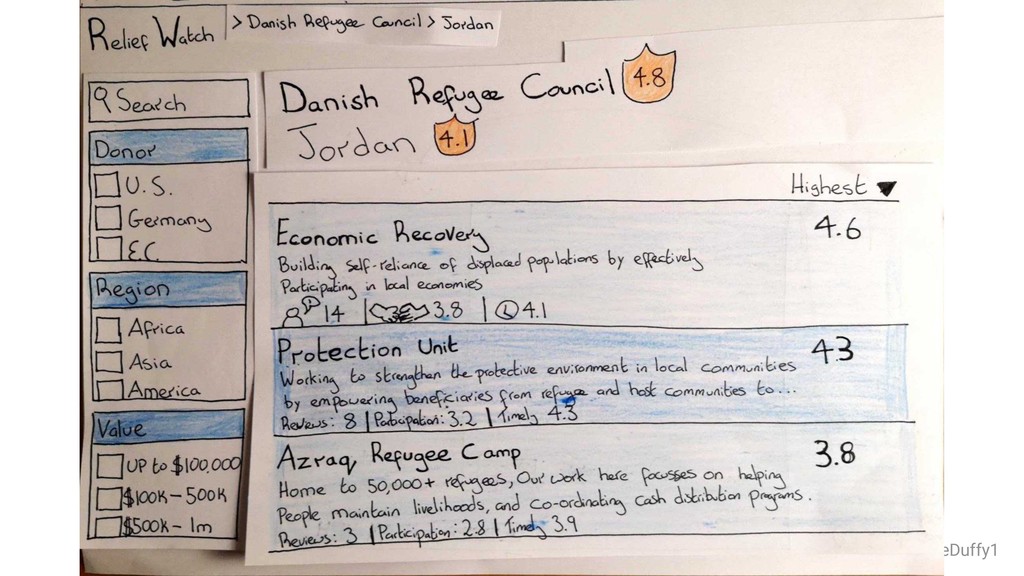 Relief Watch
> Danish Refugee Council > Jordan
Search
Donor
U.S.
Germany
E.C.
Region
Africa
Asia
America
Value
UP to $100,000
$100K - 500K
$500K - 1m
Danish Refugee Council 4.8
Jordan 4.1
Highest ▼
Economic Recovery 4.6
Building Self-reliance of displaced populations by effectively
Participating in local economies
14 | 3.8 | 4.1
Protection Unit 43
Working to strengthen the protective environment in local communities
by empowering beneficiaries from refugee and host communities to...
Reviews: 8 | Participation: 3.2 | Timely 4.3
Azraq Refugee Camp 3.8
Home to 50,000+ refugees, Our work here focusses on helping
People maintain livelihoods, and co-ordinating cash distribution programs.
Reviews: 3 | Participation: 2.8 | Timely 3.9
eDuffy1